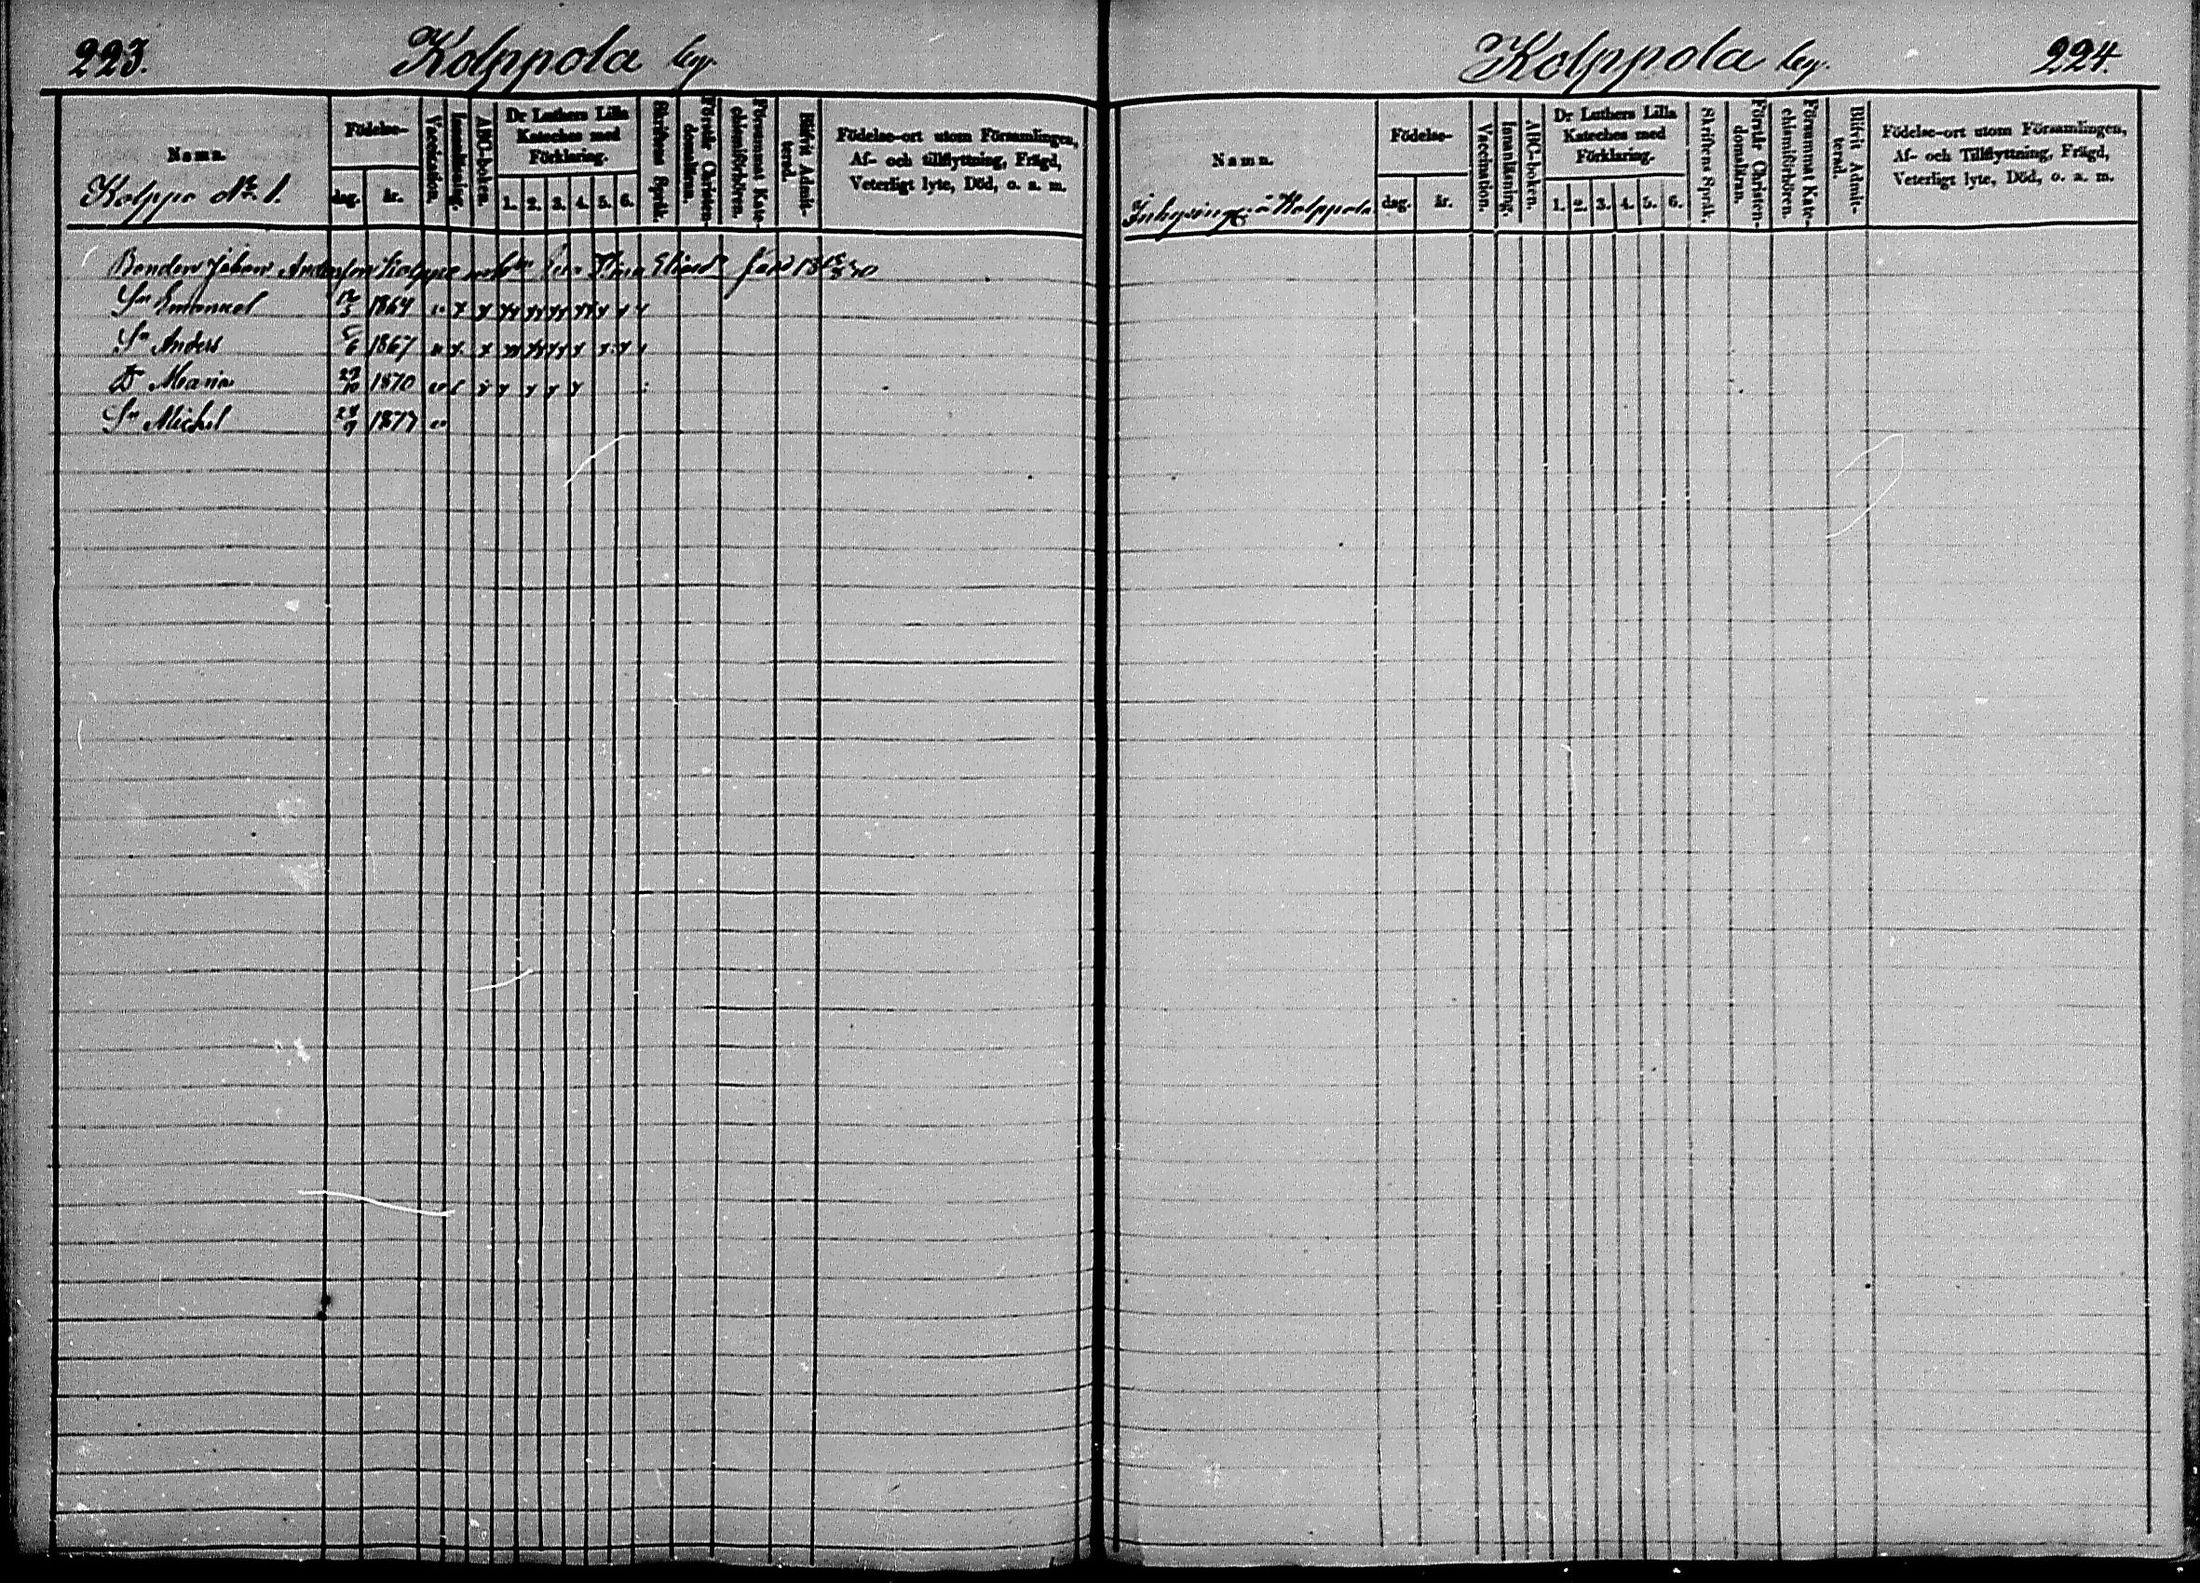 223.
Kolppola by.
Namn.
Kolppo No 1.
Födelse-
dag.
år.
Vaccination.
Innanläsning.
ABC-boken.
Dr Luthers Lilla
Kateches med
Förklaring.
1. 2. 3. 4. 5. 6.
Skriftens Språk.
Förstår Christen-
domsläran.
Försummat Kate-
chismiförhören.
Blifvit Admit-
terad.
Födelse-ort utom Församlingen,
Af- och tillflyttning, Frägd,
Veterligt lyte, Död, o. s. m.
Bonden Johan Andersson Kolppo och Eva Stina
Sn Emanuel 12/5 1864 v x x xx xx xx xx x x x
Sn Anders 1867 v x x xx xx xx x x x
Dr Maria 23/10 1870 v x x x x x
Sn Michel 28/9 1877 v
Kolppola by.
224.
Namn.
Inhysinge å Kolppola
Födelse-
dag.
år.
Vaccination.
Innanläsning.
ABC-boken.
Dr Luthers Lilla
Kateches med
Förklaring.
1. 2. 3. 4. 5. 6.
Skriftens Språk.
Förstår Christen-
domsläran.
Försummat Kate-
chismiförhören.
Blifvit Admit-
terad.
Födelse-ort utom Församlingen,
Af- och Tillflyttning, Frägd,
Veterligt lyte, Död, o. s. m.